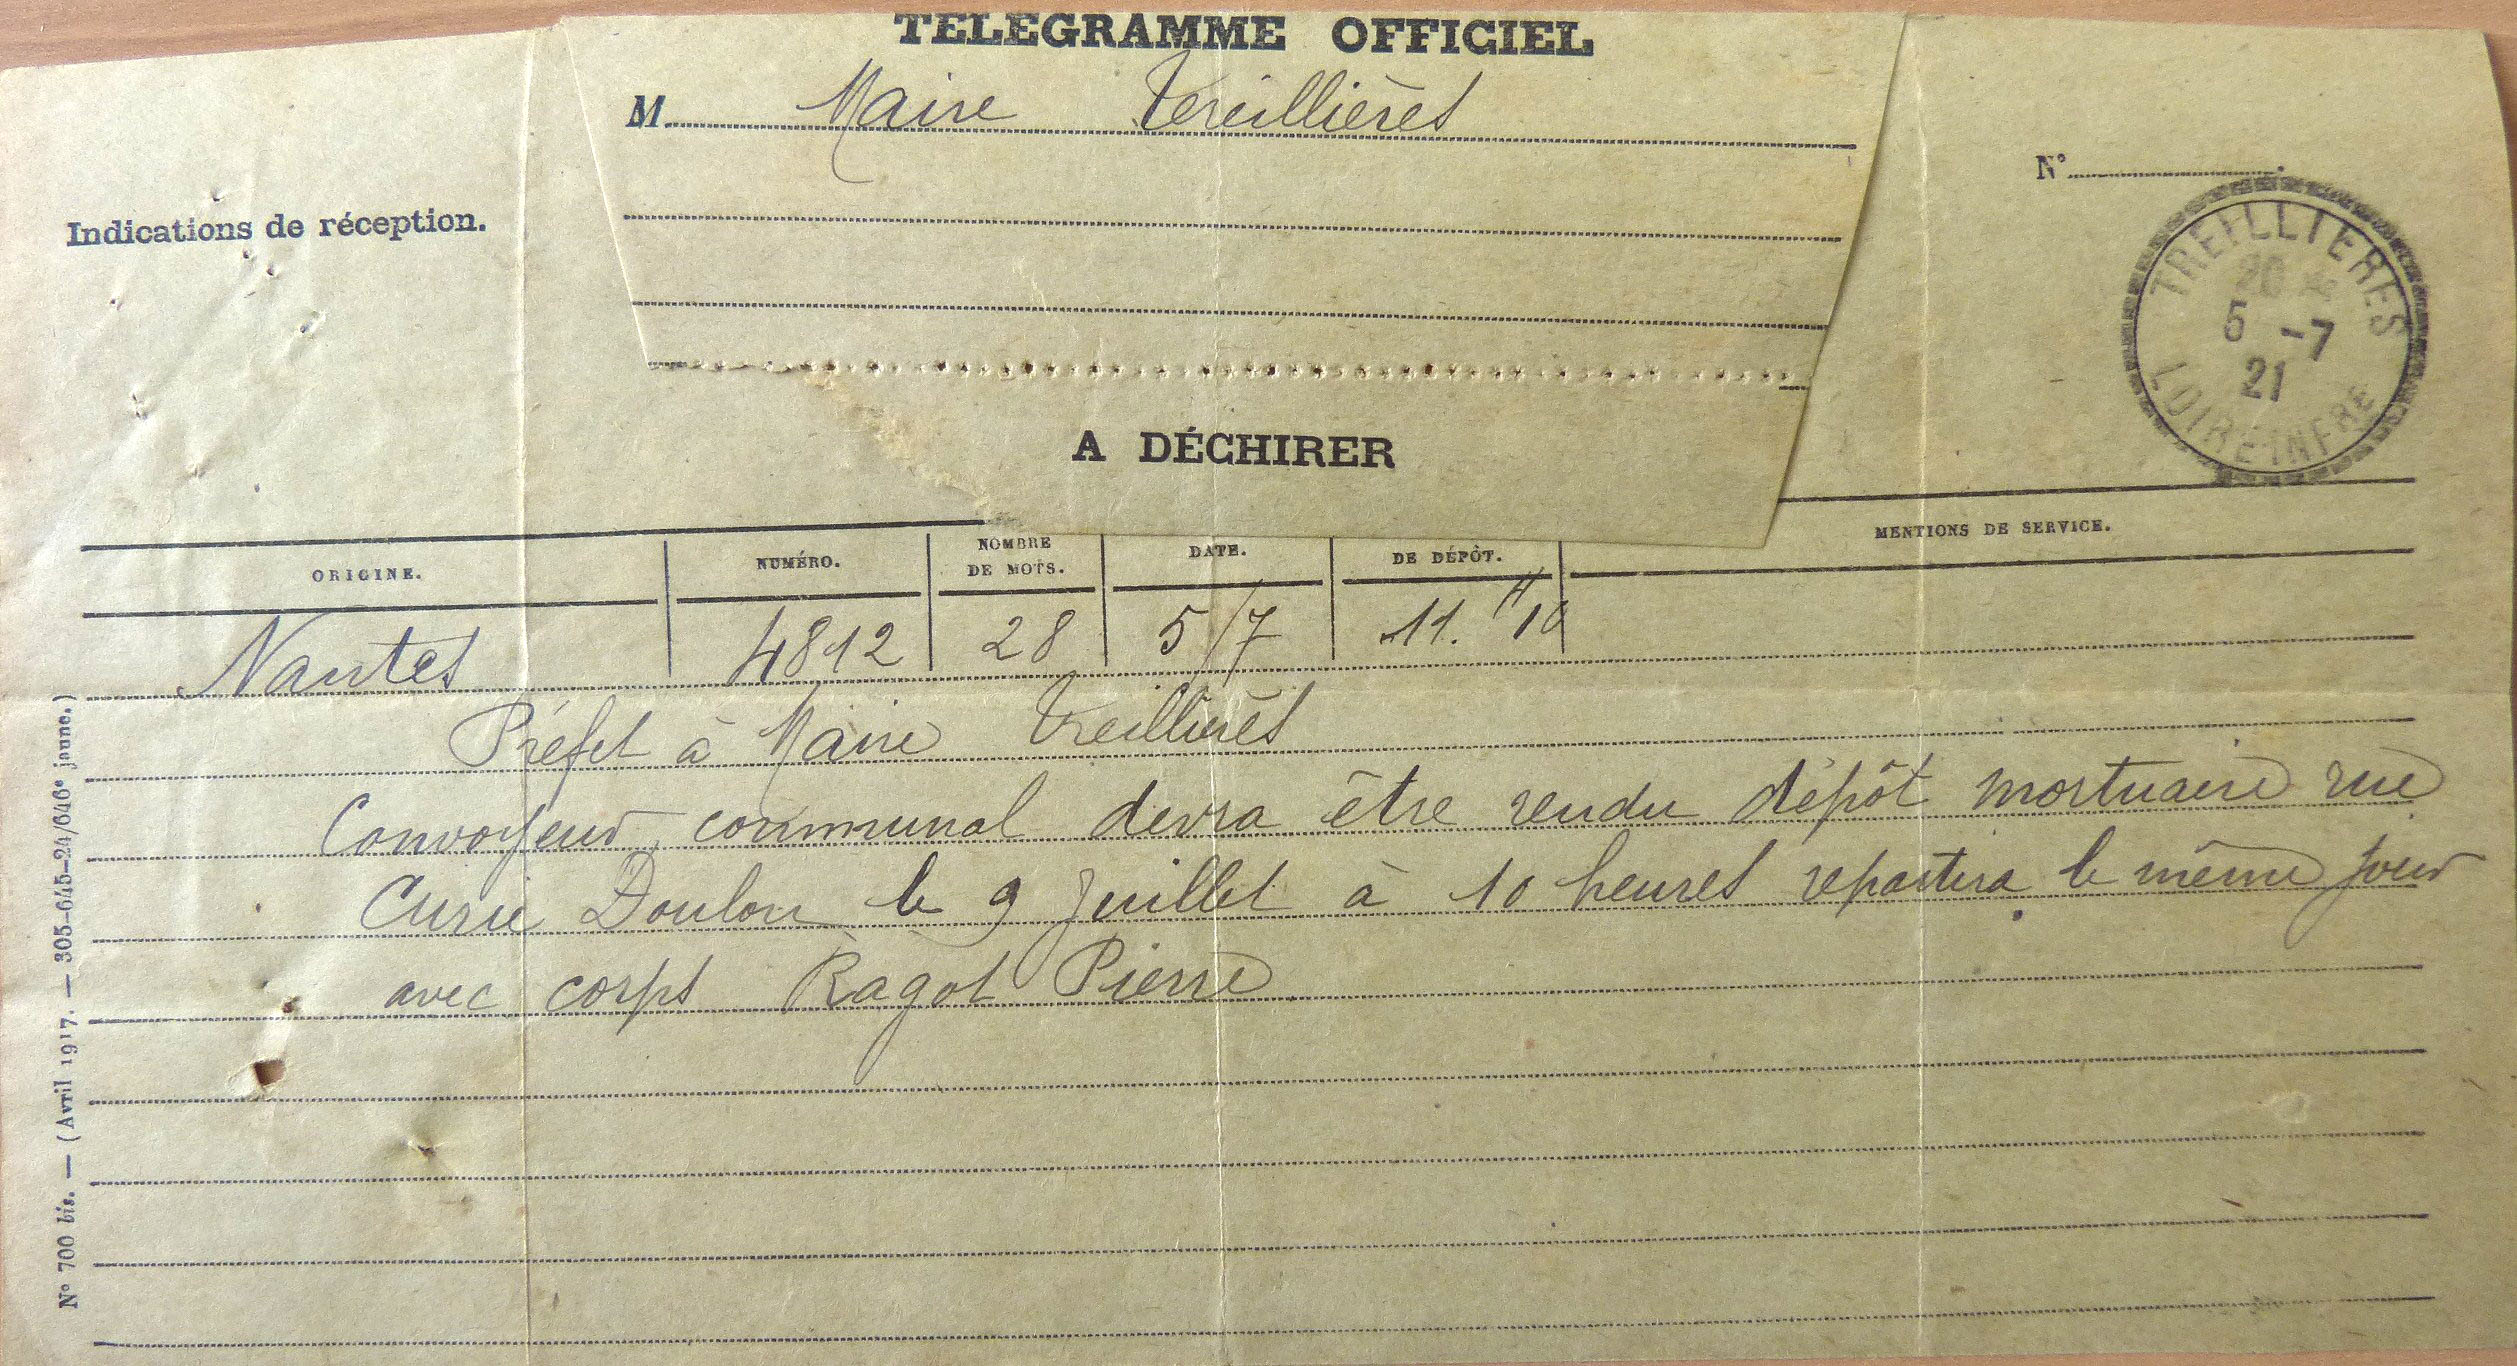 TELEGRAMME OFFICIEL
M. Maire Treillières
N°
Indications de réception.
TREILLIERES
5 -7
21
LOIRE INFRE
A DÉCHIRER
ORIGINE. NUMÉRO. NOMBRE DE MOTS. DATE. DE DÉPÔT. MENTIONS DE SERVICE.
Nantes 4812 28 5/7 11. H 10
Préfet à Maire Treillières
Convoyeur communal devra être rendu dépôt mortuaire rue
Curie Doulon le 9 Juillet à 10 heures repartira le même jour
avec corps Ragot Pierre
N° 700 bis. — (Avril 1917. — 305-645-24/646e jeune.)